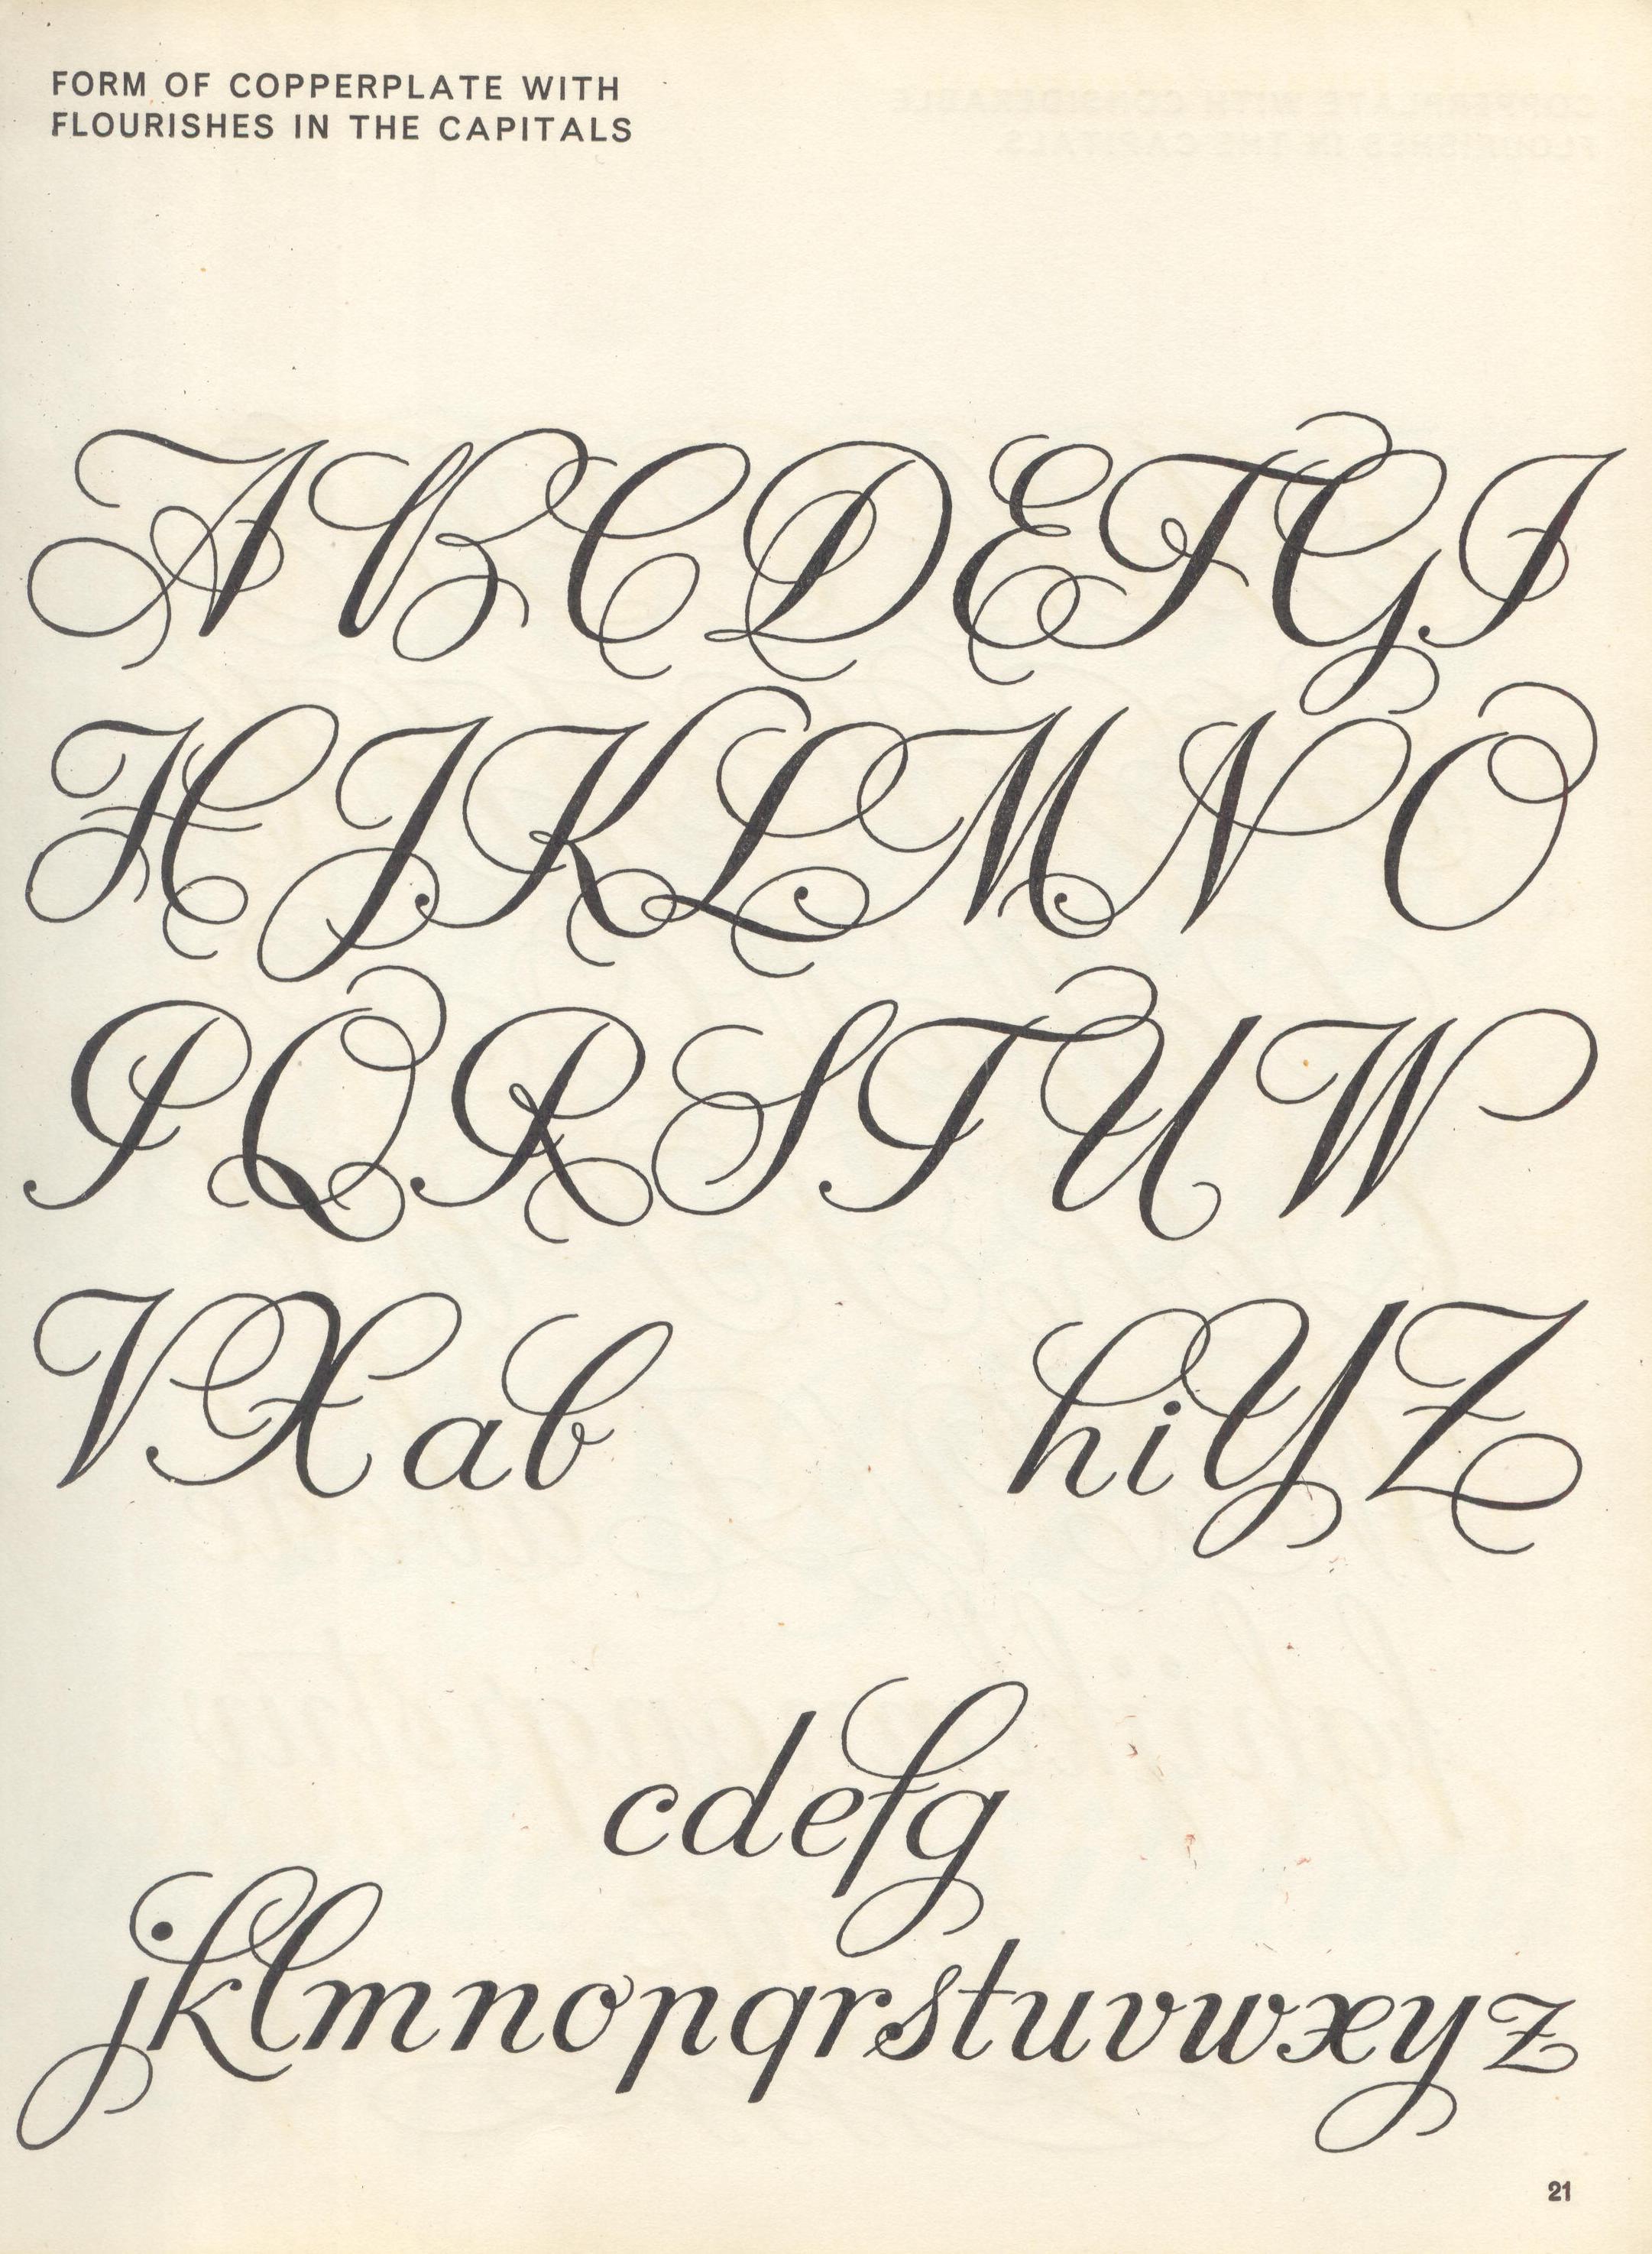 FORM OF COPPERPLATE WITH
FLOURISHES IN THE CAPITALS
A B C D E F G I
H J K L M N O
P Q R S T U W
V X a b h i Y Z
c d e f g
j k l m n o p q r s t u v w x y z
21